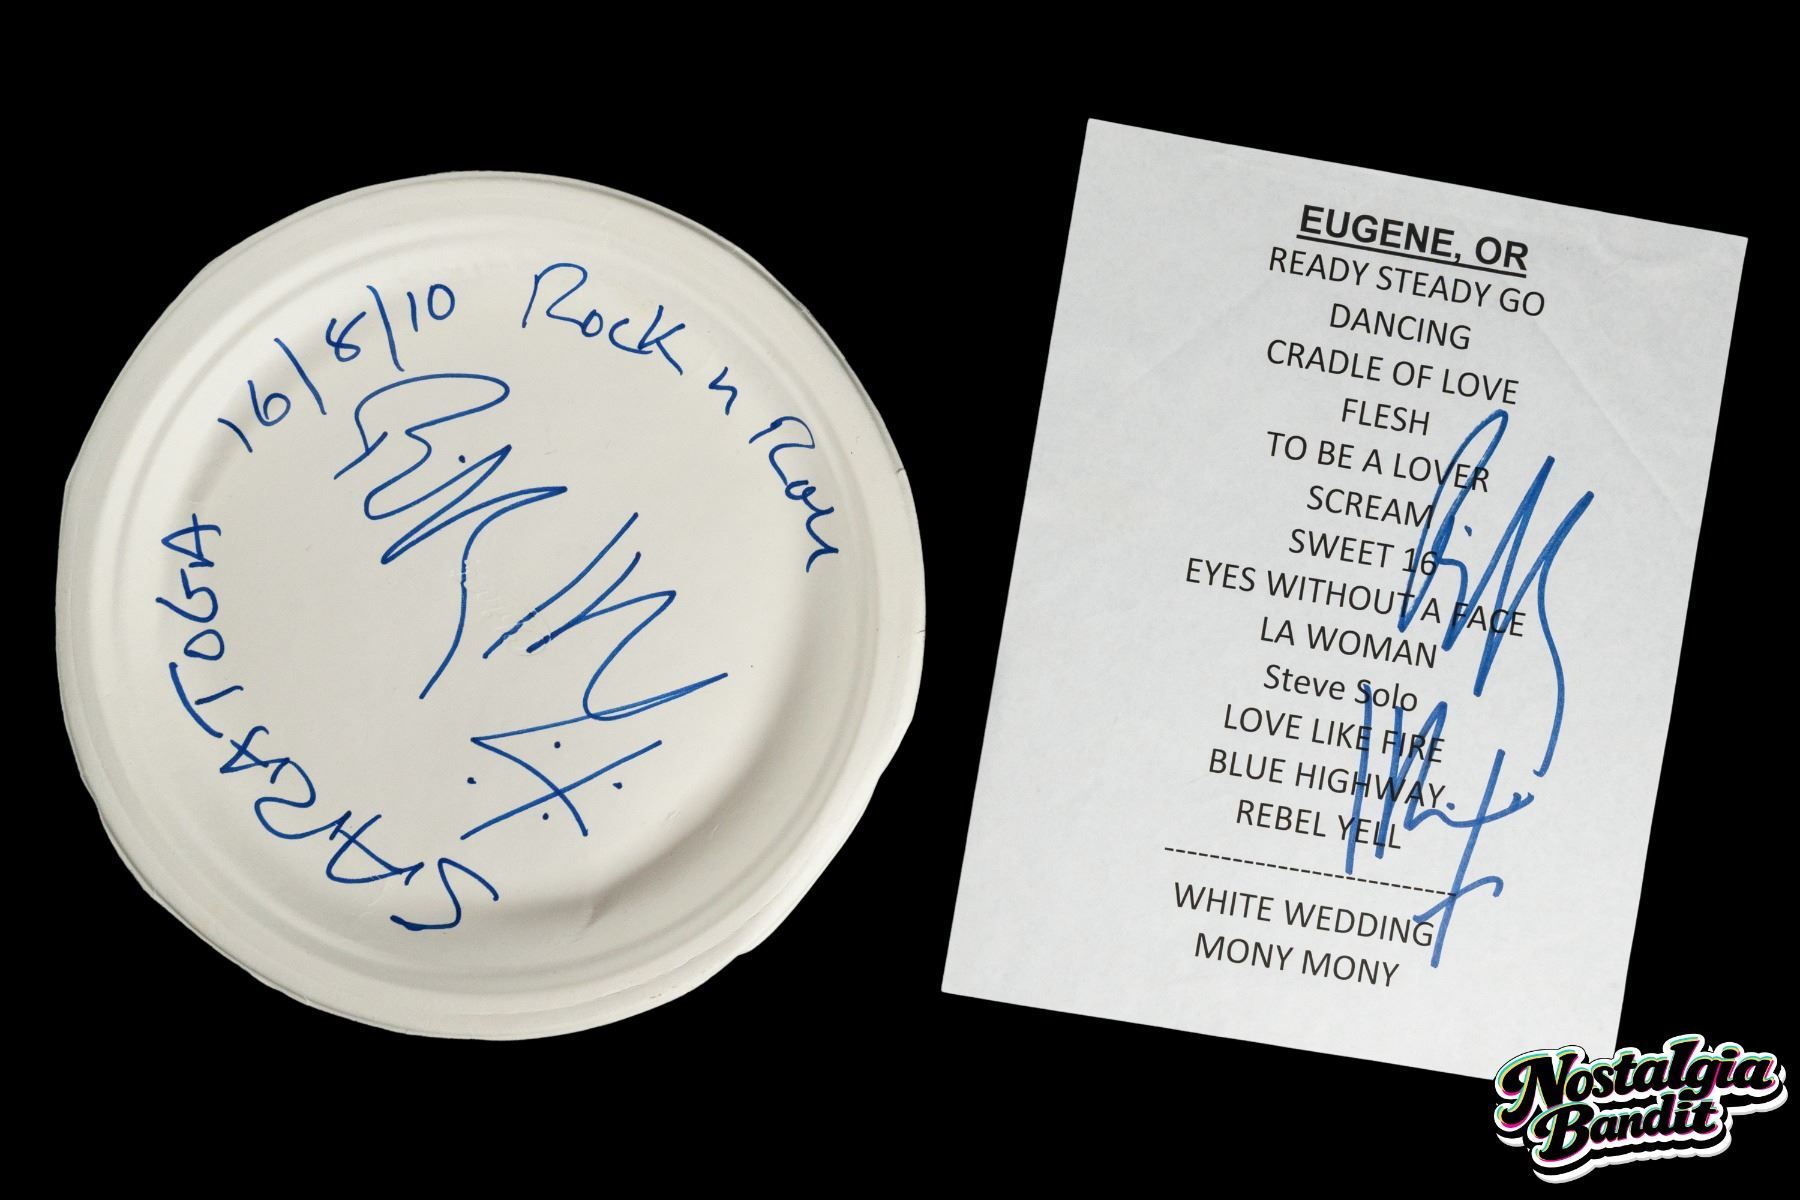 16/8/10 Rock n Roll
Billy
SARATOGA
EUGENE, OR
READY STEADY GO
DANCING
CRADLE OF LOVE
FLESH
TO BE A LOVER
SCREAM
SWEET 16
EYES WITHOUT A FACE
LA WOMAN
Steve Solo
LOVE LIKE FIRE
BLUE HIGHWAY
REBEL YELL
--------------------------
WHITE WEDDING
MONY MONY
Billy
Nostalgia
Bandit